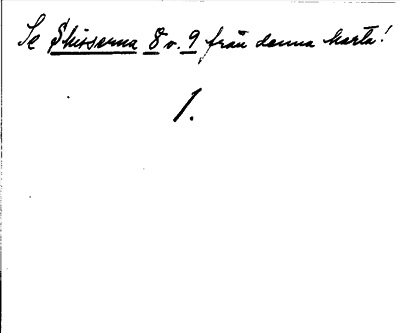 Se Skisserna 8 o. 9 från denna karta!
1.